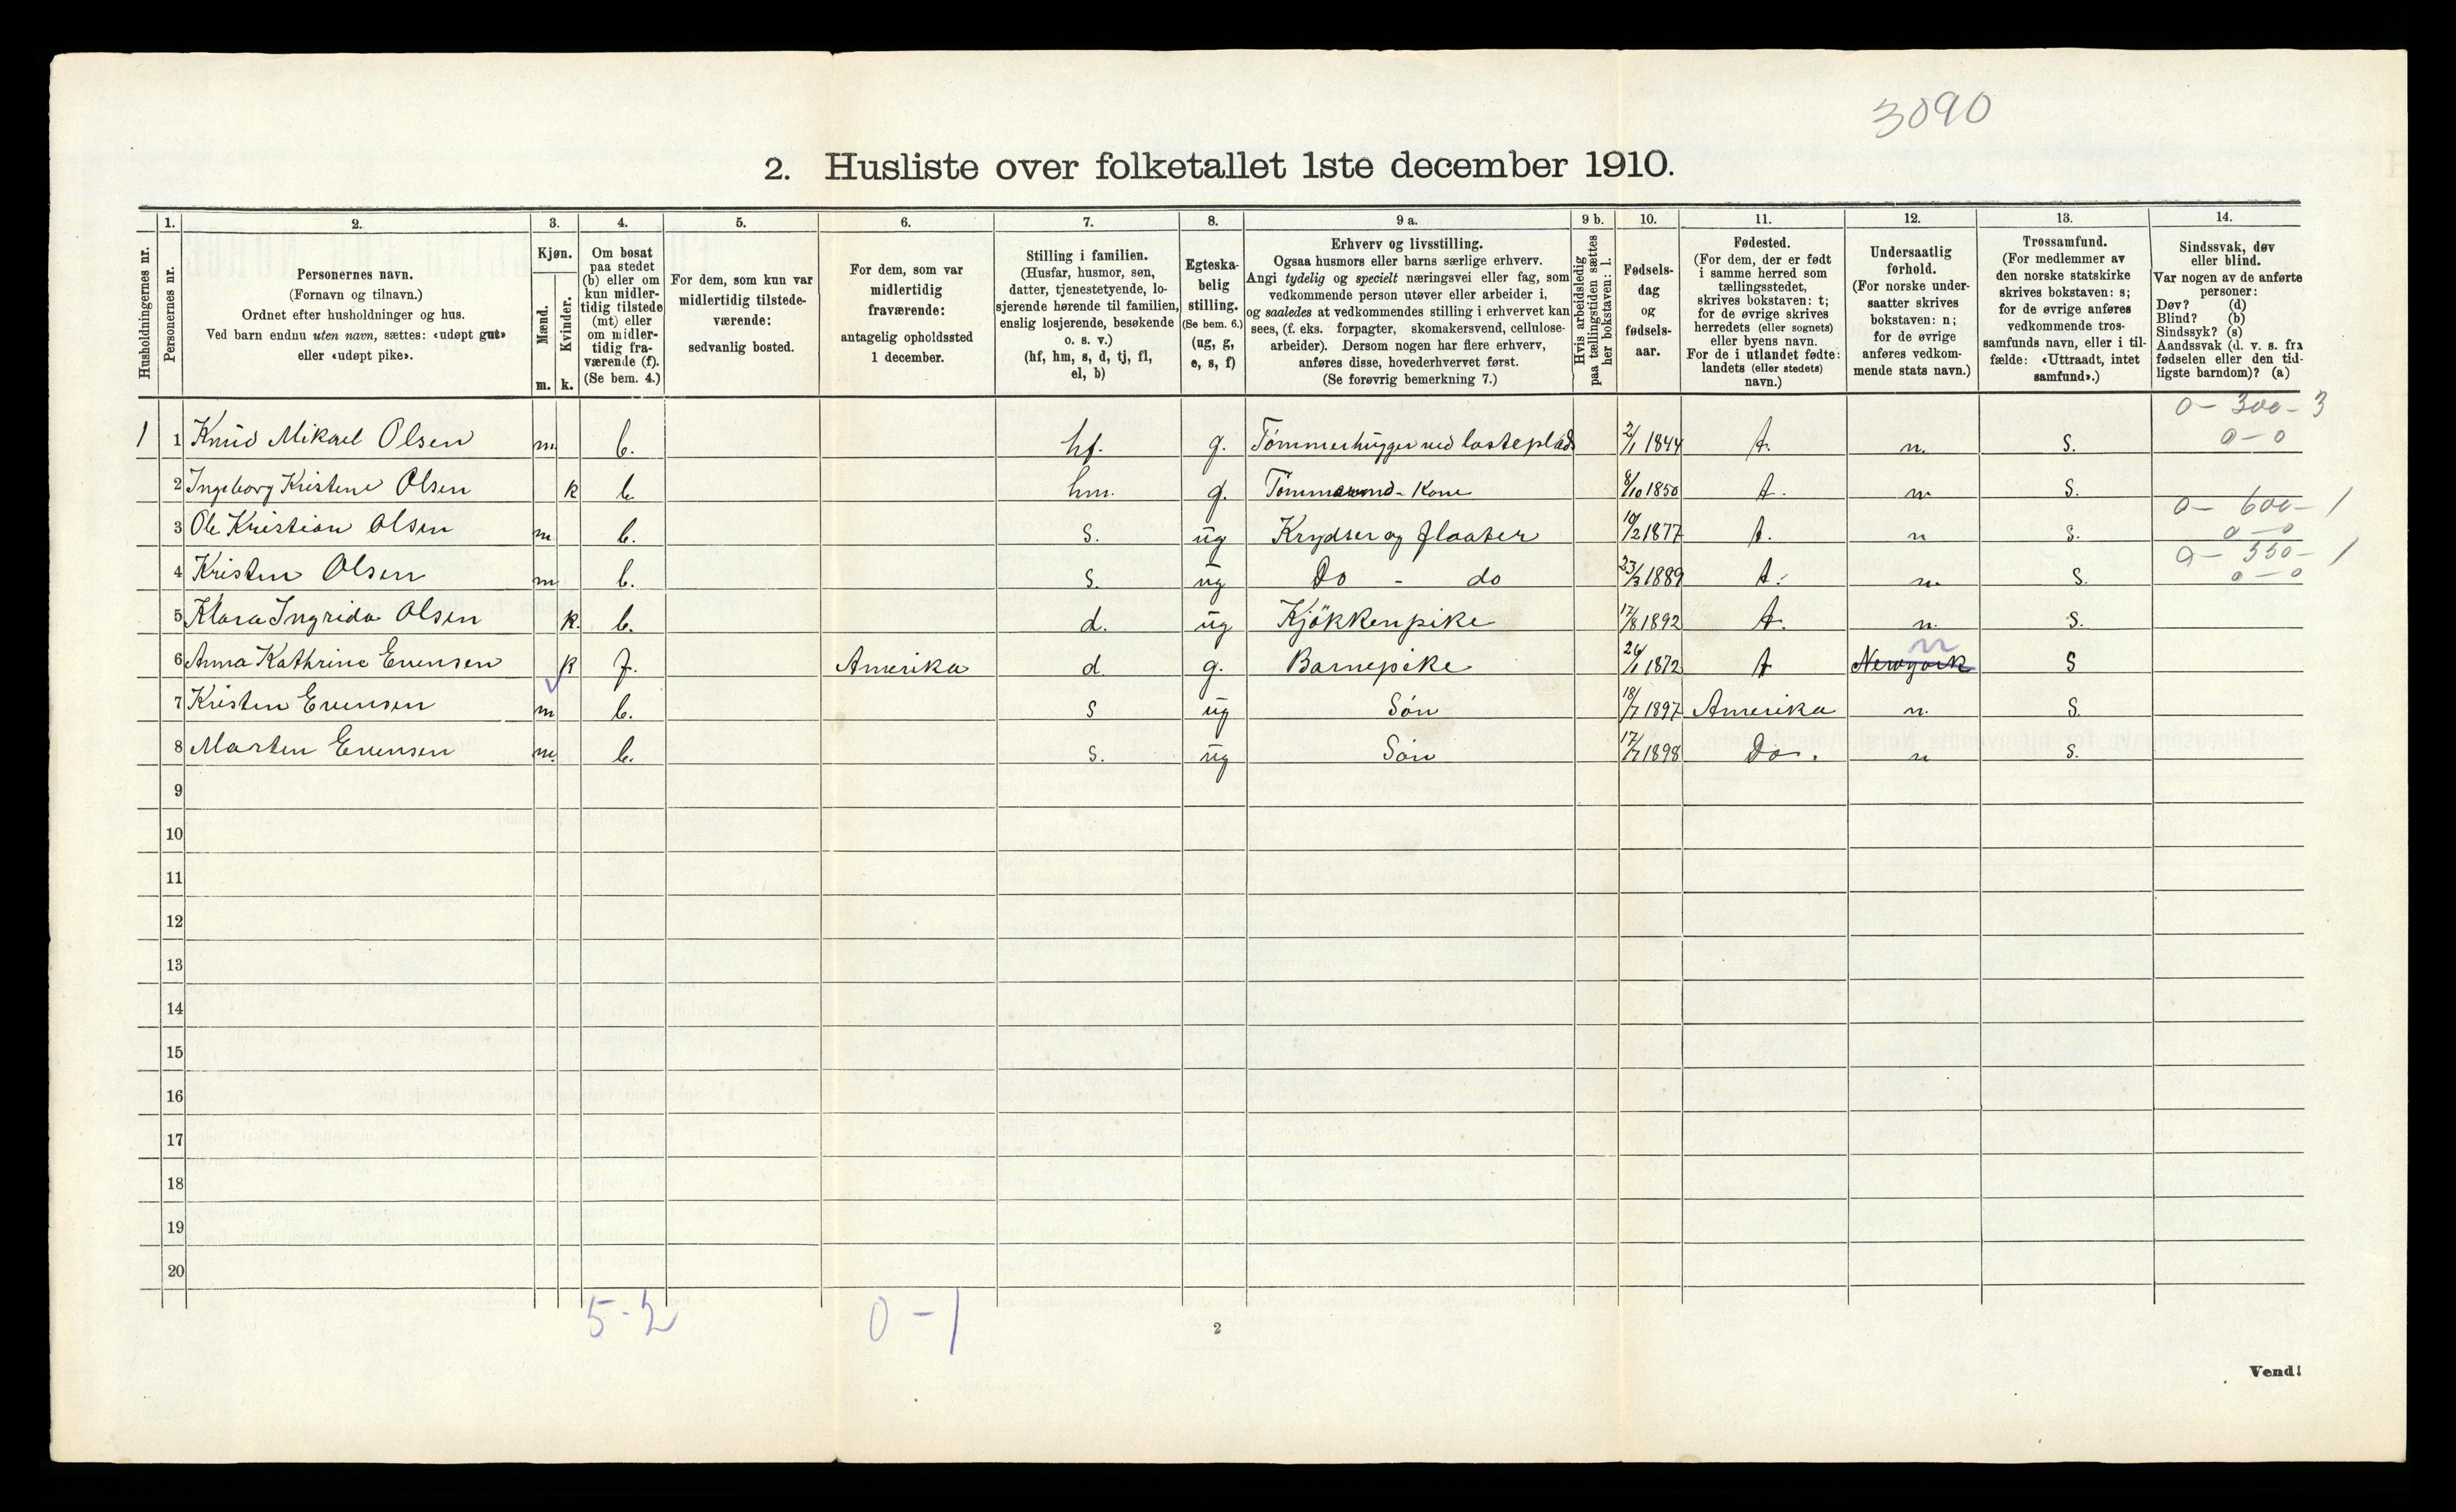 3090
2. Husliste over folketallet 1ste december 1910.
Husholdningernes nr.
1. Personernes nr.
2. Personernes navn.
(Fornavn og tilnavn.)
Ordnet efter husholdninger og hus.
Ved barn endnu uten navn, sættes: «udøpt gut»
eller «udøpt pike».
3. Kjøn.
Mænd. m.
Kvinder. k.
4. Om bosat
paa stedet
(b) eller om
kun midler-
tidig tilstede
(mt) eller
om midler-
tidig fra-
værende (f).
(Se bem. 4.)
5. For dem, som kun var
midlertidig tilstede-
værende:
sedvanlig bosted.
6. For dem, som var
midlertidig
fraværende:
antagelig opholdssted
1 december.
7. Stilling i familien.
(Husfar, husmor, søn,
datter, tjenestetyende, lo-
sjerende hørende til familien,
enslig losjerende, besøkende
o. s. v.)
(hf, hm, s, d, tj, fl,
el, b)
8. Egteska-
belig
stilling.
(Se bem. 6.)
(ug, g,
e, s, f)
9 a. Erhverv og livsstilling.
Ogsaa husmors eller barns særlige erhverv.
Angi tydelig og specielt næringsvei eller fag, som
vedkommende person utøver eller arbeider i,
og saaledes at vedkommendes stilling i erhvervet kan
sees, (f. eks. forpagter, skomakersvend, cellulose-
arbeider). Dersom nogen har flere erhverv,
anføres disse, hovederhvervet først.
(Se forøvrig bemerkning 7.)
9 b. Hvis arbeidsledig
paa tællingstiden sættes
her bokstaven: l.
10. Fødsels-
dag
og
fødsels-
aar.
11. Fødested.
(For dem, der er født
i samme herred som
tællingsstedet,
skrives bokstaven: t;
for de øvrige skrives
herredets (eller sognets)
eller byens navn.
For de i utlandet fødte:
landets (eller stedets)
navn.)
12. Undersaatlig
forhold.
(For norske under-
saatter skrives
bokstaven: n;
for de øvrige
anføres vedkom-
mende stats navn.)
13. Trossamfund.
(For medlemmer av
den norske statskirke
skrives bokstaven: s;
for de øvrige anføres
vedkommende tros-
samfunds navn, eller i til-
fælde: «Uttraadt, intet
samfund».)
14. Sindssvak, døv
eller blind.
Var nogen av de anførte
personer:
Døv? (d)
Blind? (b)
Sindssyk? (s)
Aandssvak (d. v. s. fra
fødselen eller den tid-
ligste barndom)? (a)
0 - 300 - 3
1 1 Knud Mikael Olsen m. b. hf. g. Tömmerhugger ved lasteplads 2/1 1844 t. n. s. 0 - 0
2 Ingeborg Kristine Olsen k b. hm. g. Kone 8/10 1850 t. n. s.
0 - 600 - 1
3 Ole Kristian Olsen m b. s. ug Krydser og fløater 10/2 1877 t. n s. 0 - 0
0 - 550 - 1
4 Kristen Olsen m b. s. ug Do - do 23/3 1889 t. n. s. 0 - 0
5 Klara Ingrida Olsen k. b. d. ug Kjökkenpike 17/8 1892 t. n. s.
n
6 Anna Kathrine Evensen k f. Amerika d g. Barnepike 26/1 1872 t Newyork s
7 Kristen Evensen m b. s ug Sön 18/7 1897 Amerika n. s.
8 Marten Evensen m. b. s. ug Sön 17/7 1898 Do. n s.
9
10
11
12
13
14
15
16
17
18
19
20
5 - 2 0 - 1
2
Vend!